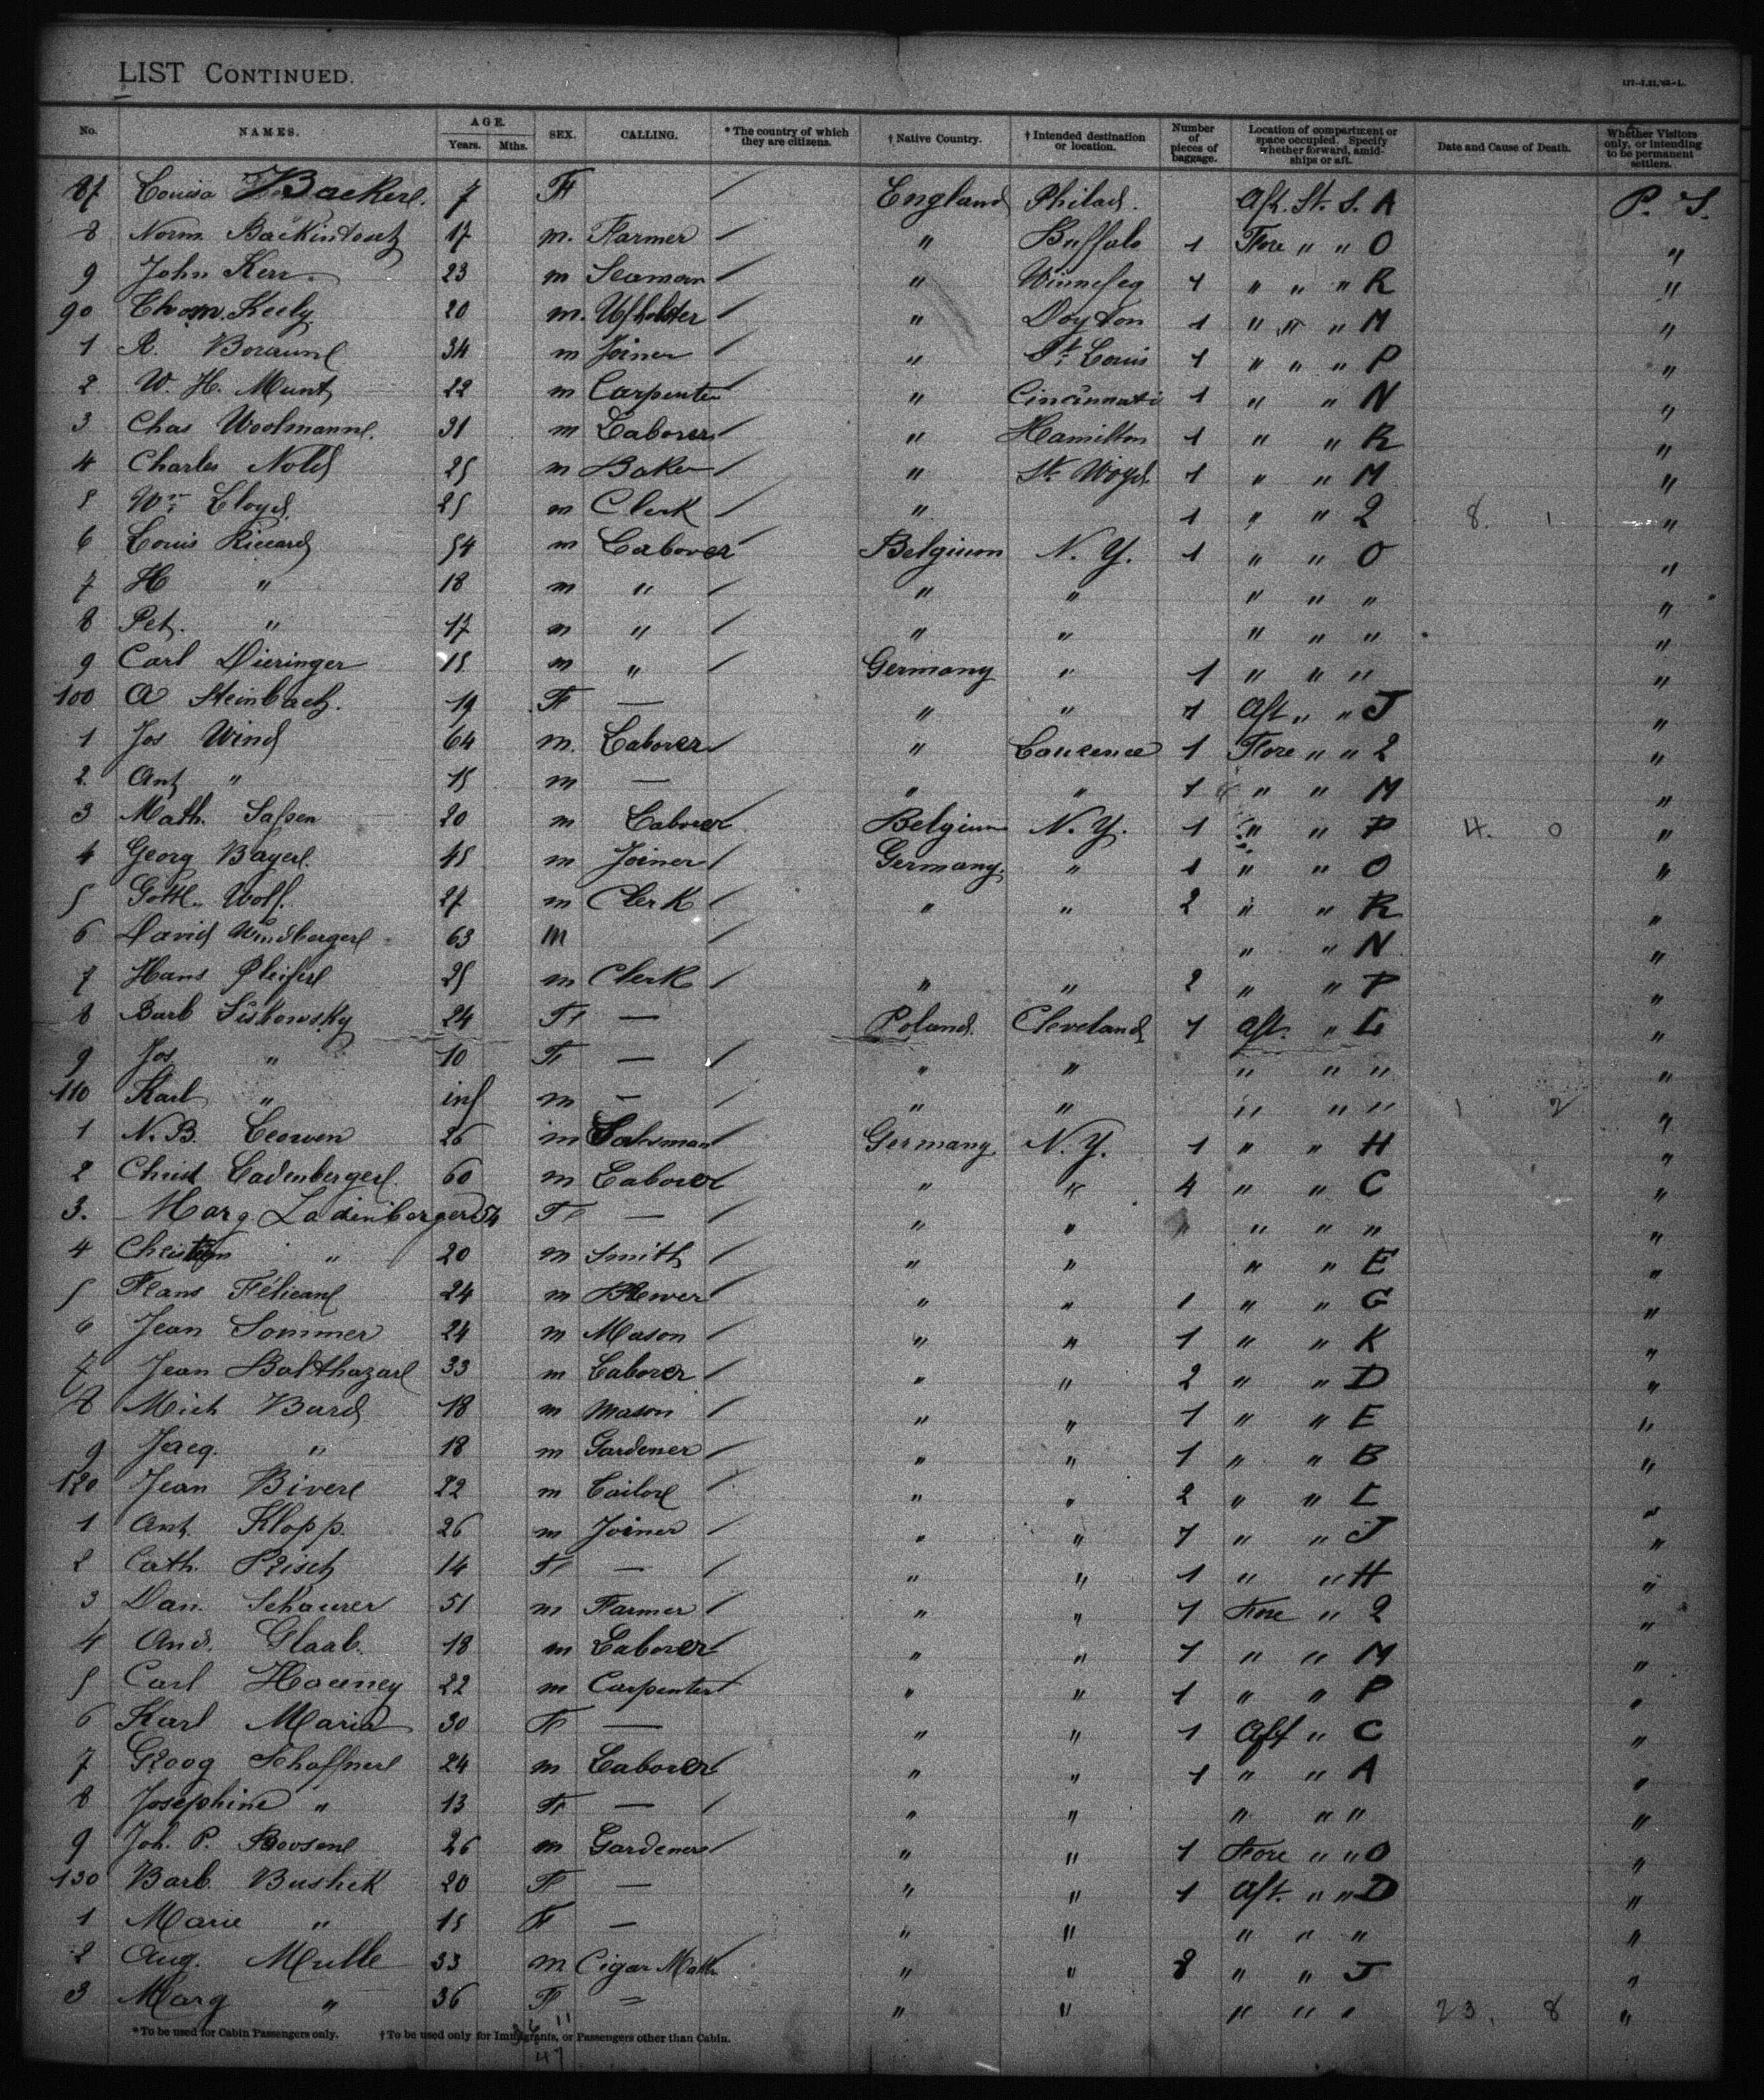 LIST CONTINUED.
No. NAMES. AGE. Years. Mths. SEX. CALLING. * The country of which they are citizens. † Native Country. † Intended destination or location. Number of pieces of baggage. Location of compartment or space occupied. Specify whether forward, amidships or aft. Date and Cause of Death. Whether Visitors only, or intending to be permanent settlers.
87 Louisa Backer 7 F / England Philad. Aft. St. S. A P. S.
8 Norm. 17 m. Farmer / " Buffalo 1 Fore " " O "
9 John Kerr 23 m Seaman / " Winnepeg 1 " " " R "
90 Thom. Keely 20 m. Upholster / " Doyton 1 " " " M "
1 R. 34 m Joiner / " St. Louis 1 " " " P "
2 W. H. Munt 22 m Carpenter / " Cincinnati 1 " " N "
3 Chas Woolmann 31 m Laborer / " Hamilton 1 " " R "
4 Charles Nold 25 m Baker / " St. 1 " " M "
5 Wm Lloyd 25 m Clerk / " 1 " " 2 8. 1 "
6 Louis Riccard 54 m Laborer / Belgium N. Y. 1 " " O "
7 H " 18 m " / " " " " " "
8 Pet. " 17 m " / " " " " " "
9 Carl Dieringer 15 m " / Germany " 1 " " " "
100 A Steinbach. 19 F — " " 1 Aft " " J "
1 Jos Wind 64 m. Laborer / " Laurence 1 Fore " " 2 "
2. Ant " 15 m — " " 1 " " M "
3 Math. 20 m Laborer Belgium N. Y. 1 " " P 4. 0 "
4 Georg Bayer 45 m Joiner / Germany. " 1 " " O "
5 Gottl. Wolf. 27 m Clerk / " " 2 " " R "
6 David Windberger 63 m / " " N "
7 Hans Pleifer 25 m Clerk / " " 2 " " P "
8 Barb Liskowsky 24 F — Poland. Cleveland 1 Aft. " L "
9 Jos " 10 F — / " " " " " "
110 Karl " inf m — / " " " " " 1 2 "
1 N. B. 26 m Salsman / Germany N. Y. 1 " " H "
2 Christ Ladenberger 60 m Laborer " " 4 " " C "
3. Marg Ladenberger 54 F — / " " " " " " "
4 Christian " 20 m Smith / " " " " E "
5 Frans 24 m Brewer / " " 1 " " G "
6 Jean Sommer 24 m Mason / " " 1 " " K "
7 Jean Balthazar 33 m Laborer / " " 2 " " D "
8 Mich Burd 18 m Mason / " " 1 " " E "
9 Jacq. " 18 m Gardener / " " 1 " " B "
120 Jean Biver 22 m Tailor / " " 2 " " L "
1 Ant. Klopp. 26 m Joiner / " " 1 " " J "
2 Cath. Frisch 14 F — / " " 1 " " H "
3 Dan. Schaurer 51 m Farmer / " " 1 Fore " 2 "
4 And. Glaab. 18 m Laborer / " " 1 " " M "
5 Carl 22 m Carpenter / " " 1 " " P "
6 Karl Maria 30 F — " " 1 Aft " C "
7 Georg Schaffner 24 m Laborer / " " 1 " " A "
8 Josephine " 13 F — / " " " " " "
9 Joh. P. 26 m Gardener / " " 1 Fore " " O "
130 Barb. Bushek 20 F — " " 1 Aft. " " D "
1 Marie " 15 F — " " " " " "
2 Aug. Mulle 33 m Cigar / " " 2 " " J "
3 Marg " 36 F = " " " " " 23. 8 "
* To be used for Cabin Passengers only. † To be used only for Immigrants, or Passengers other than Cabin.
36 11
47